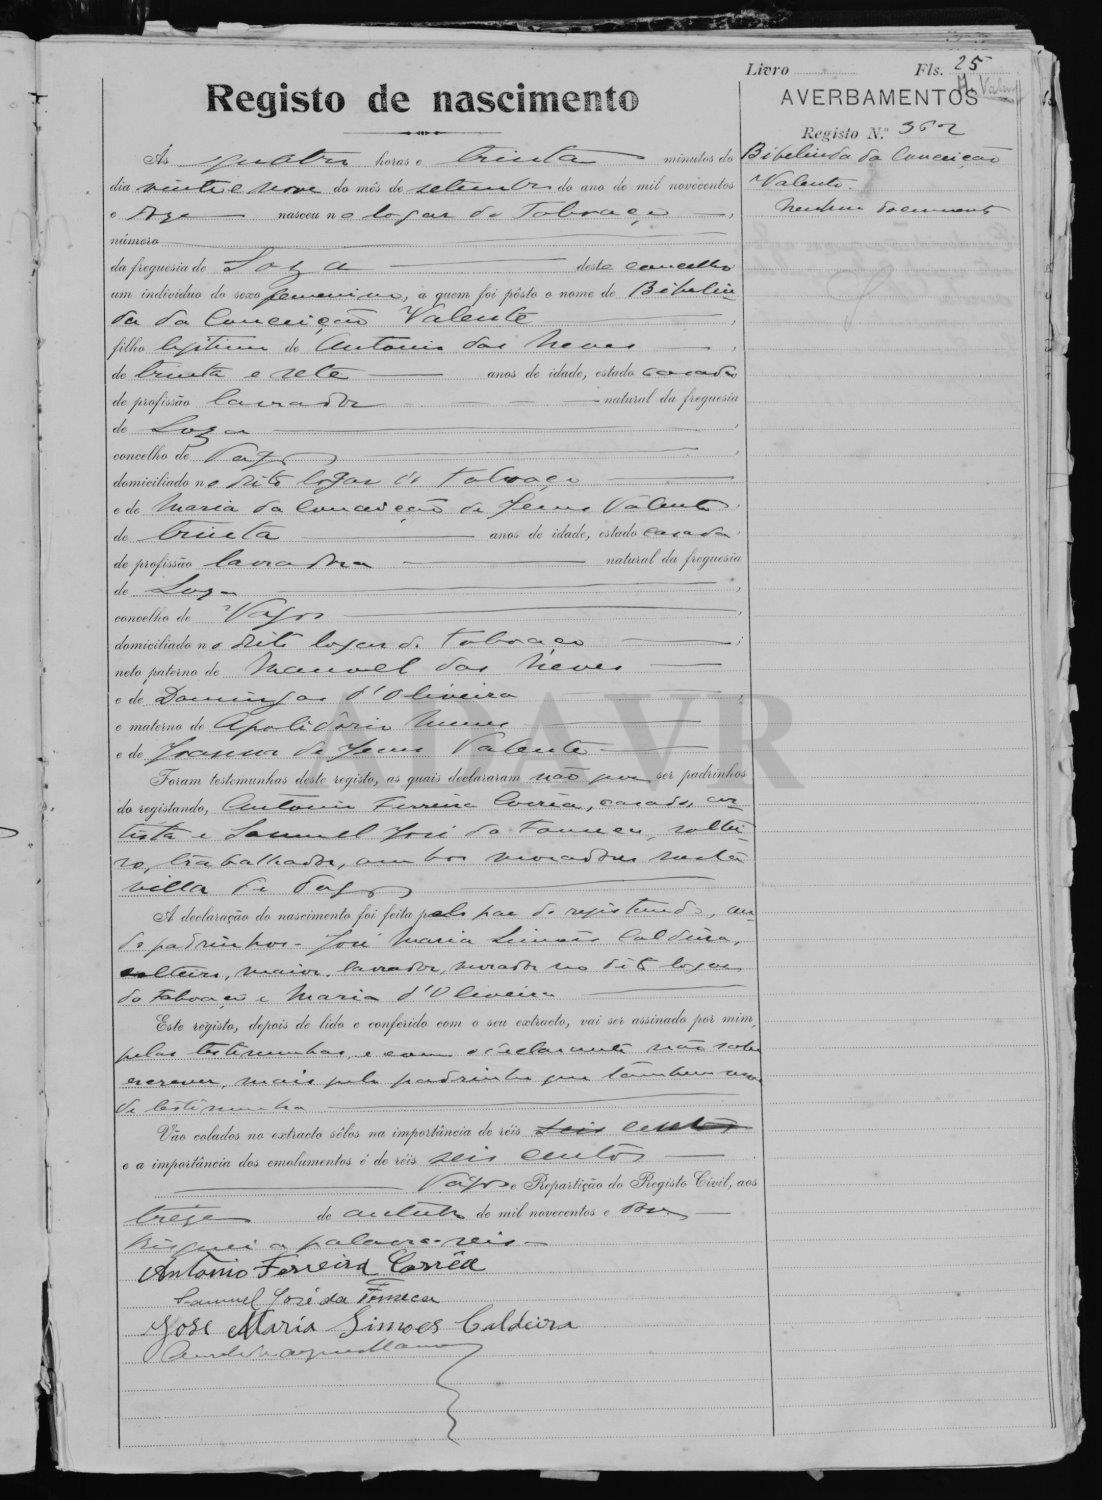 Livro Fls. 25
Registo de nascimento
AVERBAMENTOS
Registo N.º 362
Bibelinda da Conceição
Valente.
Nenhum documento
Às quatro horas e trinta minutos do
dia vinte e nove do mês de setembro do ano de mil novecentos
e doze nasceu no logar do Taboaço,
número
da freguesia de Soza deste concelho
um individuo do sexo femenino, a quem foi pôsto o nome de Bibelin-
da da Conceição Valente,
filho legitimo de Antonio das Neves,
de trinta e sete anos de idade, estado casado
de profissão lavrador natural da freguesia
de Soza,
concelho de Vagos
domiciliado no dito logar do Taboaço
e de Maria da Conceição de Jesus Valente,
de trinta anos de idade, estado casada
de profissão lavradora natural da freguesia
de Soza,
concelho de Vagos,
domiciliado no dito logar do Taboaço;
neto paterno de Manoel das Neves
e de Domingas d'Oliveira;
e materno de Apolidório Nunes
e de Joanna de Jesus Valente
Foram testemunhas deste registo, as quais declararam não ser padrinhos
do registando, Antonio Ferreira Corrêa, casado, ar-
tista e Samuel José da Fonseca, soltei-
ro, trabalhador, ambos moradores nesta
villa de Vagos
A declaração do nascimento foi feita pelo pae do registando,
padrinhos - José Maria Simões Caldeira,
solteiro, maior, lavrador, morador no dito logar
do Taboaço e Maria d'Oliveira
Este registo, depois de lido e conferido com o seu extracto, vai ser assinado por mim,
pelas testemunhas, e como o declarante não sabe
escrever, mais pelo padrinho que tambem
de testimunha
Vão colados no extracto sêlos na importância de réis seis centos
e a importância dos emolumentos é de réis seis centos
Vagos e Repartição do Registo Civil, aos
treze de outubro de mil novecentos e doze
Risquei a palavra-seis-
Antonio Ferreira Corrêa
Samuel José da Fonseca
José Maria Simoes Caldeira
ADAVR